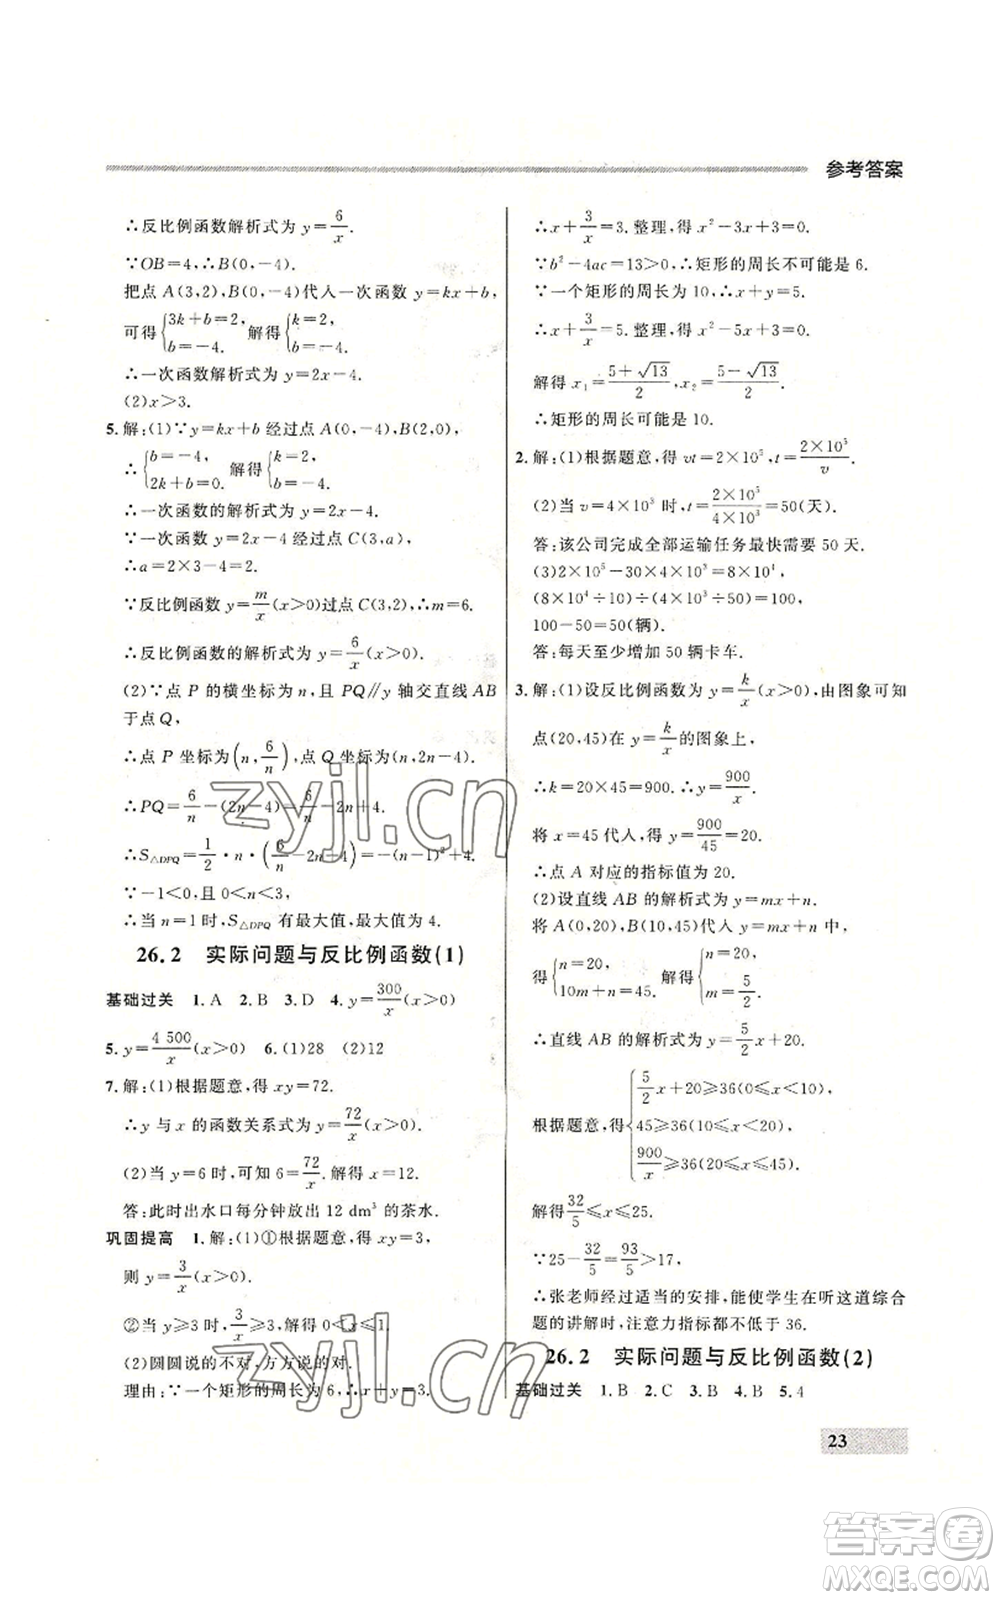 参考答案
∴反比例函数解析式为 y=6/x.
∵OB=4,∴B(0,-4).
把点 A(3,2),B(0,-4)代入一次函数 y=kx+b,
可得{3k+b=2, b=-4. 解得{k=2, b=-4.
∴一次函数解析式为 y=2x-4.
(2)x>3.
5.解:(1)∵y=kx+b 经过点 A(0,-4),B(2,0),
∴{b=-4, 2k+b=0. 解得{k=2, b=-4.
∴一次函数的解析式为 y=2x-4.
∵一次函数 y=2x-4 经过点 C(3,a),
∴a=2×3-4=2.
∵反比例函数 y=m/x(x>0)过点 C(3,2),∴m=6.
∴反比例函数的解析式为 y=6/x.
(2)∵点 P 的横坐标为 n,且 PQ∥y 轴交直线 AB
于点 Q,
∴点 P 坐标为(n,6/n),点 Q 坐标为(n,2n-4).
∴PQ=6/n-(2n-4)=6/n-2n+4.
∴S△DPQ=1/2·n·(6/n-2n+4)=-(n-1)²+4.
∵-1<0,且 0<n<3,
∴当 n=1 时,S△DPQ 有最大值,最大值为 4.
26.2 实际问题与反比例函数(1)
基础过关 1.A 2.B 3.D 4.y=300/x(x>0)
5.y=4 500/x(x>0) 6.(1)28 (2)12
7.解:(1)根据题意,得 xy=72.
∴y 与 x 的函数关系式为 y=72/x.
(2)当 y=6 时,可知 6=72/x.解得 x=12.
答:此时出水口每分钟放出 12 dm³ 的茶水.
巩固提高 1.解:(1)①根据题意,得 xy=3,
则 y=3/x(x>0).
②当 y≥3 时,3/x≥3,解得 0<x≤1.
(2)圆圆说的不对,方方说的对.
理由:∵一个矩形的周长为 6,∴x+y=3.
∴x+3/x=3.整理,得 x²-3x+3=0.
∵b²-4ac=13>0,∴矩形的周长不可能是 6.
∵一个矩形的周长为 10,∴x+y=5.
∴x+3/x=5.整理,得 x²-5x+3=0.
解得 x₁=(5+√13)/2,x₂=(5-√13)/2.
∴矩形的周长可能是 10.
2.解:(1)根据题意,得 vt=2×10⁵,t=2×10⁵/v.
(2)当 v=4×10³ 时,t=2×10⁵/4×10³=50(天).
答:该公司完成全部运输任务最快需要 50 天.
(3)2×10⁵-30×4×10³=8×10⁴,
(8×10⁴÷10)÷(4×10³÷100)-
100-50=50(辆).
答:每天至少增加 50 辆卡车.
3.解:(1)设反比例函数为 y=k/x(x>0),由图象可知
点(20,45)在 y=k/x的图象上,
∴k=20×45=900,∴y=900/x.
将 x=45 代入,得 y=900/45=20.
∴点 A 对应的指标值为 20.
(2)设直线 AB 的解析式为 y=mx+n.
将 A(0,20),B(10,45)代入 y=mx+n 中,
得{n=20, 10m+n=45. 解得{n=20, m=5/2.
∴直线 AB 的解析式为 y=5/2x+20.
根据题意,得{5/2x+20≥36(0≤x<10), 45≥36(10≤x<20), 900/x≥36(20≤x≤45).
解得32/5≤x≤25.
∵25-32/5=93/5>17,
∴张老师经过适当的安排,能使学生在听这道综合
题的讲解时,注意力指标都不低于 36.
26.2 实际问题与反比例函数(2)
基础过关 1.B 2.C 3.B 4.B 5.4
23
zyjl.cn
zyjl.cn
答案圈
MXQE.COM